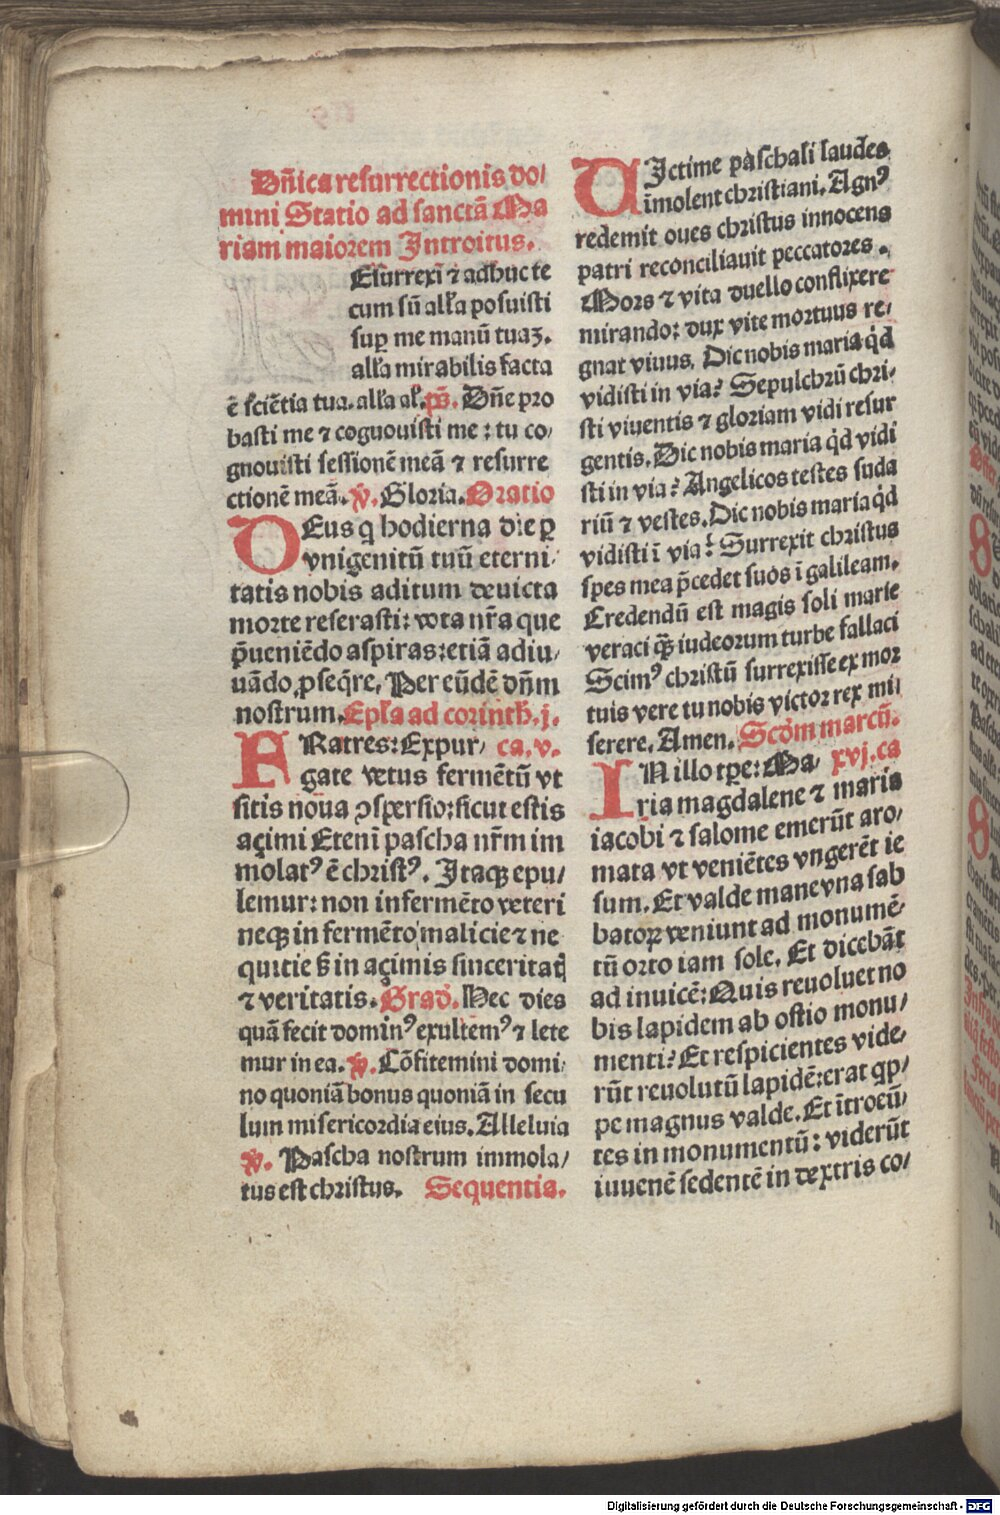 Dñica resurrectionis do/
mini Statio ad sanctã Ma
riam maiorem Introitus.
Esurrexi ⁊ adhuc te
cum sũ all'a posuisti
sup me manũ tuaꝫ.
all'a mirabilis facta
ē sciẽtia tua. all'a al'. ps̃. Dñe pro
basti me ⁊ cognouisti me : tu co/
gnouisti sessionẽ meã ⁊ resurre
ctionẽ meã. ℣. Gloria. Oratio
DEus q hodierna die ꝑ
vnigenitũ tuũ eterni/
tatis nobis aditum deuicta
morte reserasti: vota nr̃a que
p̃ueniẽdo aspiras: etiã adiu/
uãdo ꝓseq̃re. Per eũdẽ dñm
nostrum. Epl'a ad corinth. j.
FRatres: Expur/ ca. v.
gate vetus fermẽtũ vt
sitis noua ꝯspersio: sicut estis
açimi Eteni pascha nr̃m im
molatꝰ ē christꝰ. Itaqꝫ epu/
lemur: non in fermẽto veteri
neqꝫ in fermẽto malicie ⁊ ne
quitie ß in açimis sinceritatꝭ
⁊ veritatis. Grad'. Hec dies
quã fecit dominꝰ exultemꝰ ⁊ lete
mur in ea. ℣. Cõfitemini domi/
no quoniã bonus quoniã in secu
lum misericordia eius. Alleluia
℣. Pascha nostrum immola/
tus est christus. Sequentia.
VIctime paschali laudes
ĩmolent christiani. Agnꝰ
redemit oues christus innocens
patri reconciliauit peccatores.
Mors ⁊ vita duello conflixere
mirando: dux vite mortuus re/
gnat viuus. Dic nobis maria q̇d
vidisti in via? Sepulchrũ chri/
sti viuentis ⁊ gloriam vidi resur
gentis. Dic nobis maria q̇d vidi
sti in via? Angelicos testes suda
riũ ⁊ vestes. Dic nobis maria q̇d
vidisti ĩ via? Surrexit christus
spes mea p̃cedet suos ĩ galileam.
Credendũ est magis soli marie
veraci qꝫ iudeorum turbe fallaci
Scimꝰ christũ surrexisse ex mor
tuis vere tu nobis victor rex mi/
serere. Amen. Scd'm marcũ.
IN illo tꝑe: Ma/ xvj. ca
ria magdalene ⁊ maria
iacobi ⁊ salome emerũt aro/
mata vt veniẽtes vngerẽt ie
sum. Et valde mane vna sab
batoꝝ veniunt ad monumẽ/
tũ orto iam sole. Et dicebãt
ad inuicẽ: Quis reuoluet no
bis lapidem ab ostio monu/
menti? Et respicientes vide/
rũt reuolutũ lapidẽ: erat qp̃/
pe magnus valde. Et ĩtroeũ/
tes in monumentũ: viderũt
iuuenẽ sedentẽ in dextris co/
Digitalisierung gefördert durch die Deutsche Forschungsgemeinschaft - DFG